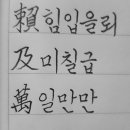 賴힘입을뢰
及미칠급
萬일만만